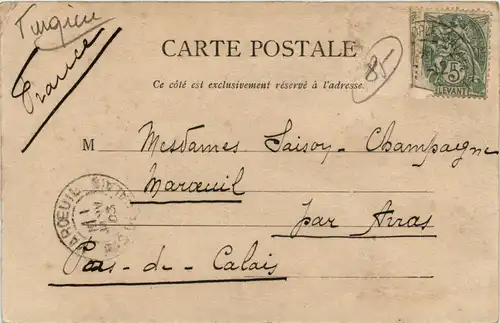 Turquie
France
CARTE POSTALE
85
Ce côté est exclusivement réservé à l'adresse.
5
LEVANT
M Mesdames Saisoy - Champagne
Maroeuil
par Arras
Pas-de-Calais
MAROEUIL